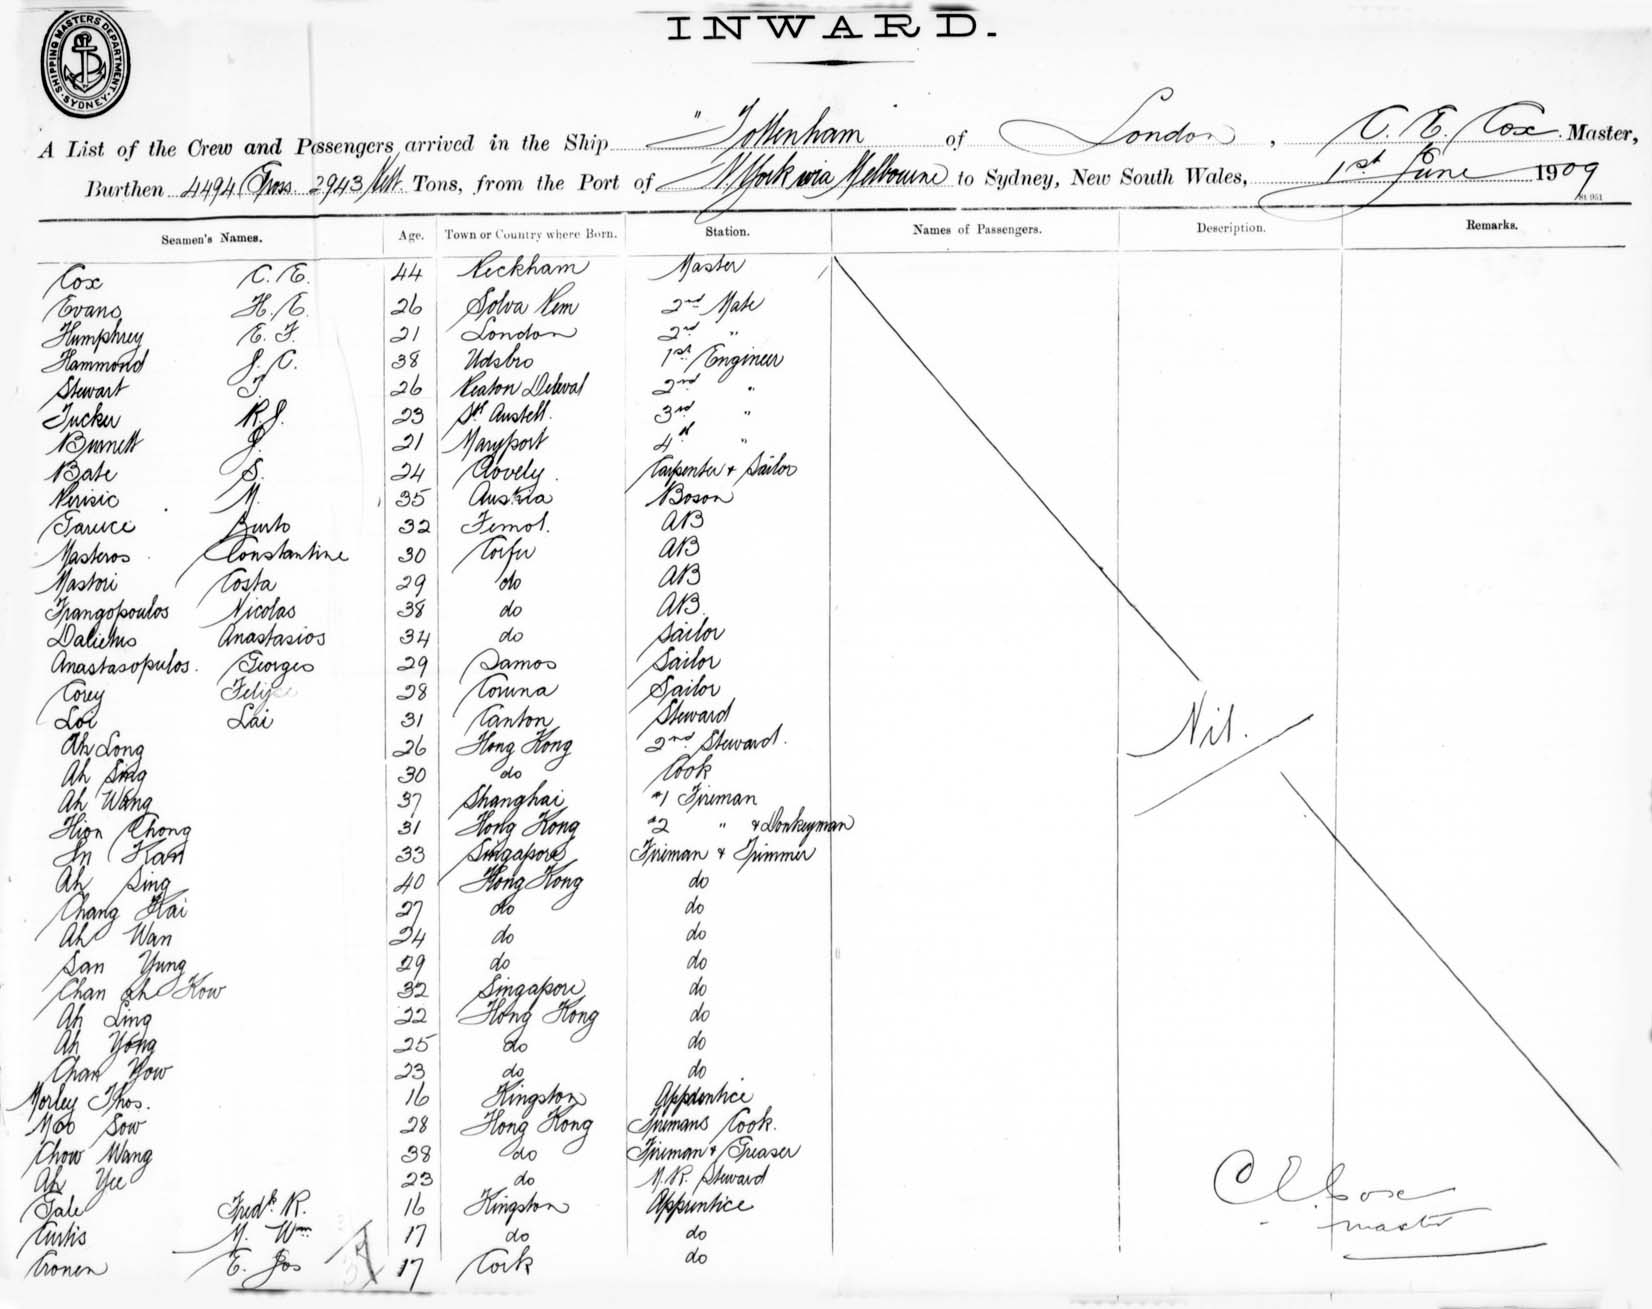 INWARD.
SHIPPING MASTERS DEPARTMENT. SYDNEY
A List of the Crew and Passengers arrived in the Ship "Tottenham of London, C. E. Cox. Master,
Burthen 4494 Gross. 2943 Nett. Tons, from the Port of N. York via Melbourne to Sydney, New South Wales, 1st June 1909
Seamen's Names. Age. Town or Country where Born. Station. Names of Passengers. Description. Remarks.
Cox C. E. 44 Peckham Master
Evans H. E. 26 Solva Pem 2nd Mate
Humphrey E. F. 21 London 2nd "
Hammond J. C. 38 1st Engineer
Stewart T. 26 Seaton Deleval 2nd "
Tucker R. J. 23 St Austell. 3rd "
Burnett J. 21 Maryport 4th "
Bate S. 24 Clovely. Carpenter & Sailor
M. 35 Austria Boson
32 AB
Masteros Constantine 30 Corfu AB
Mastori Costa 29 do AB
Frangopoulos Nicolas 38 do AB.
Anastasios 34 do Sailor
Anastasopulos. Georges 29 Samos Sailor
Corey Felipe 28 Coruna Sailor
Loi Lai 31 Canton Steward
Ah Long 26 Hong Kong 2nd Steward.
Ah Sing 30 do Cook
Ah Wang 37 Shanghai #1 Fireman
Hion Chong 31 Hong Kong #2 " & Donkeyman
Kan 33 Singapore Fireman & Trimmer
Ah Sing 40 Hong Kong do
Chang Kai 27 do do
Ah Wan 24 do do
San Yung 29 do do
Chan Ah Kow 32 Singapore do
Ah Ling 22 Hong Kong do
Ah Yong 25 do do
Chan Yow 23 do do
Morley Thos. 16 Kingston Apprentice
Moo Sow 28 Hong Kong Firemans Cook.
Chow Wang 38 do Fireman & Greaser
Ah Yee 23 do M. R. Steward
Gale Fredk R. 16 Kingston Apprentice
Curtis M. Wm 17 do do
Cronen E. Jos 17 Cork do
Nil.
C E Cox
master